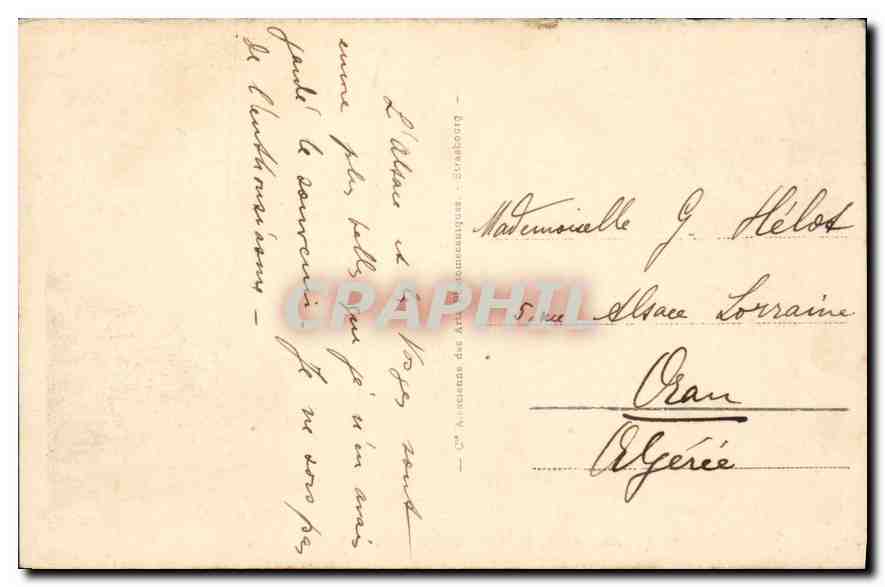 L'Alsace et les Vosges sont
encore plus belles que je n'en avais
gardé le souvenir. Je ne sors pas
de l'enthousiasme –
– Cie Alsacienne des Arts Photomécaniques. - Strasbourg –
Mademoiselle G. Hélot
5, rue Alsace Lorraine
Oran
Algérie
CRAPHIL